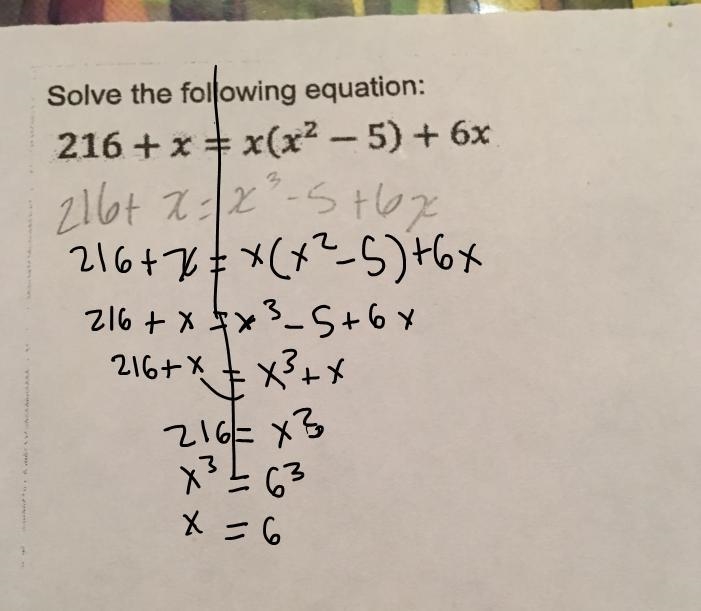 Solve the following equation:
216 + x = x(x² − 5) + 6x
216+ x = x³-5+6x
216+x = x(x²-5)+6x
216 + x = x³-5+6x
216+x = x³+x
216= x³
x³ = 6³
x = 6